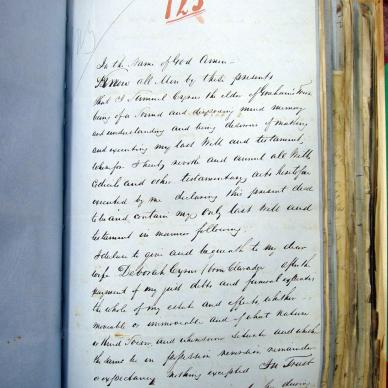 123
In the Name of God Amen
Know all Men by these presents
that I Samuel Cyrus the elder of Graham's Town
being of a Sound and disposing mind memory
and understanding and being desirous of making
and executing my last Will and testament,
Wherefor I hereby revoke and annul all Wills
Codicils and other testamentary acts heretofor
executed by me declaring this present deed
to contain my only last Will and
testament in manner following.
I declare to give and bequeath to my dear
wife Deborah Cyrus (born after the
payment of my just debts and funeral expenses
the whole of my estate and effects, whether
moveable or immoveable and of what nature
or kind soever, and wheresoever situate and which
the same be in possession reversion remainder
or expectancy nothing excepted In Trust
during